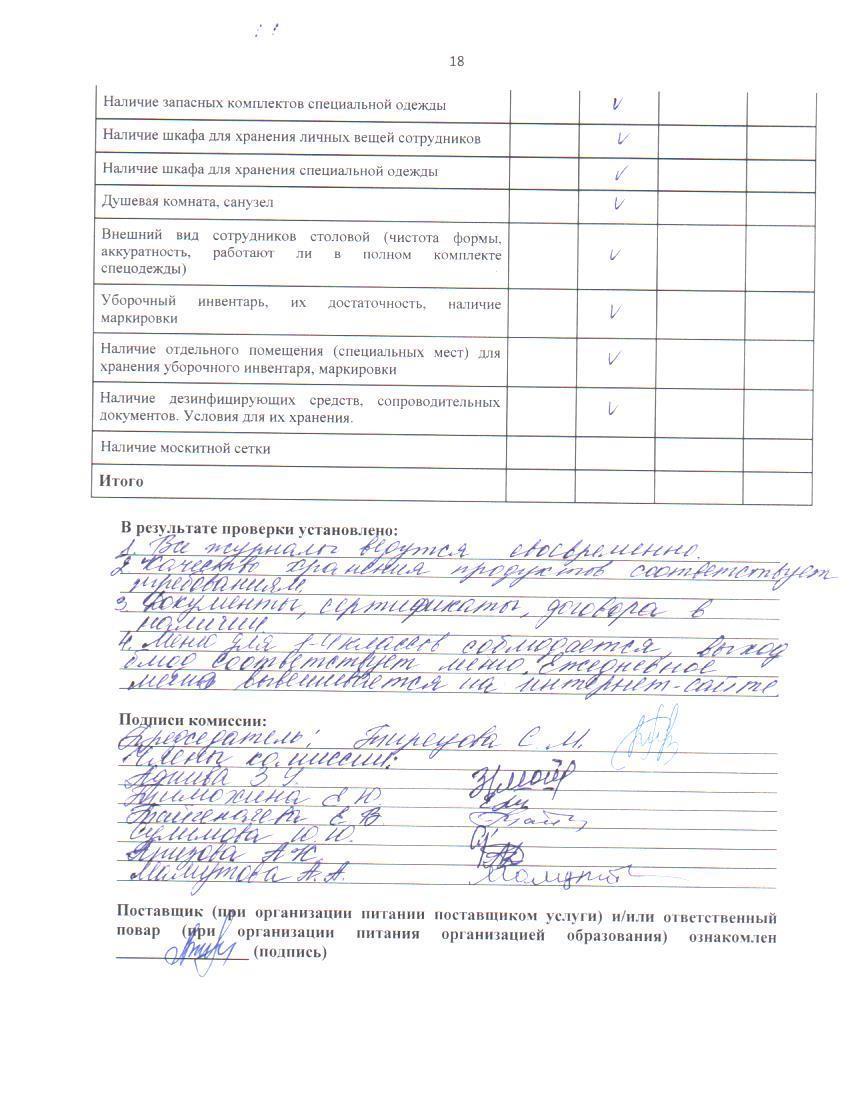 18
Наличие запасных комплектов специальной одежды
Наличие шкафа для хранения личных вещей сотрудников
Наличие шкафа для хранения специальной одежды
Душевая комната, санузел
Внешний вид сотрудников столовой (чистота формы,
аккуратность, работают ли в полном комплекте
спецодежды)
Уборочный инвентарь, их достаточность, наличие
маркировки
Наличие отдельного помещения (специальных мест) для
хранения уборочного инвентаря, маркировки
Наличие дезинфицирующих средств, сопроводительных
документов. Условия для их хранения.
Наличие москитной сетки
Итого
В результате проверки установлено:
1. Все журналы ведутся своевременно.
2. Качество хранения продуктов соответствует
требованиям.
3. Документы, сертификаты, договора в
наличии.
4. Меню для 1-4 классов соблюдается, выход
блюд соответствует меню. Ежедневное
меню вывешивается на интернет-сайте.
Подписи комиссии:
Председатель: С. М.
Члены комиссии:
З.
Тимохина Е. Ю.
Е. В.
Сулимова Ю. Ю.
А.
Мамутова А. А.
Поставщик (при организации питании поставщиком услуги) и/или ответственный
повар (при организации питания организацией образования) ознакомлен
(подпись)